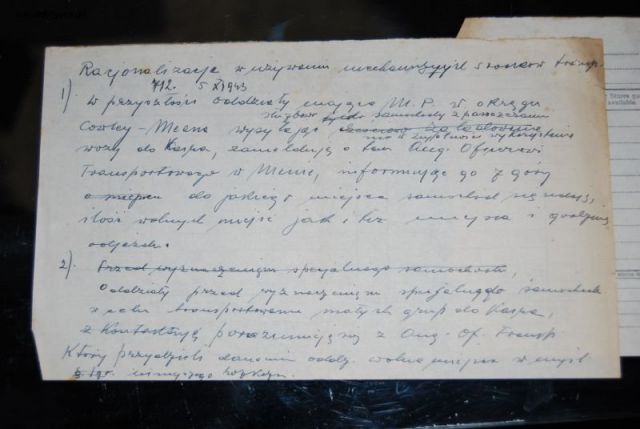 Racjonalizacja w używaniu mechanicznych środków transp.
712. 5 XI 1943
1) W przyszłości oddziały mające M.P. w okręgu
służbowe samochody z pasażerami
wysyłając
nie w zupełności wykorzystane
wozy do Kaspa, zameldują o tem Ang. Oficerowi
Transportowego w Menie, informując go z góry
o miejscu do jakiego miejsca samochód się udaje,
ilość wolnych miejsc jak i też miejsca i godzinę
odjazdu.
2) Przed wyznaczeniem specjalnego samochodu,
Oddziały przed wyznaczeniem specjalnego samochodu
w celu transportowania małych grup do Kaspa,
skontaktują porozumiewając z Ang. Of. Transp
Który przydzieli danemu oddz. wolne miejsca w myśl
niniejszego rozkazu.